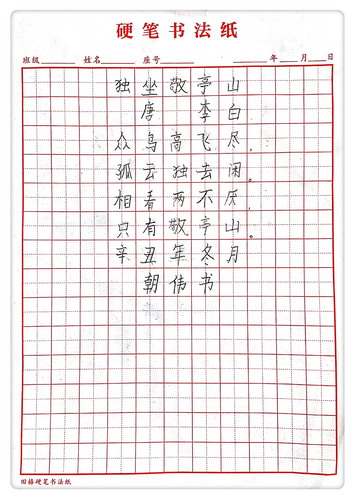 硬笔书法纸
班级 姓名 座号 年 月 日
独坐敬亭山
唐 李白
众鸟高飞尽，
孤云独去闲。
相看两不厌，
只有敬亭山。
辛丑年冬月
朝伟书
田格硬笔书法纸